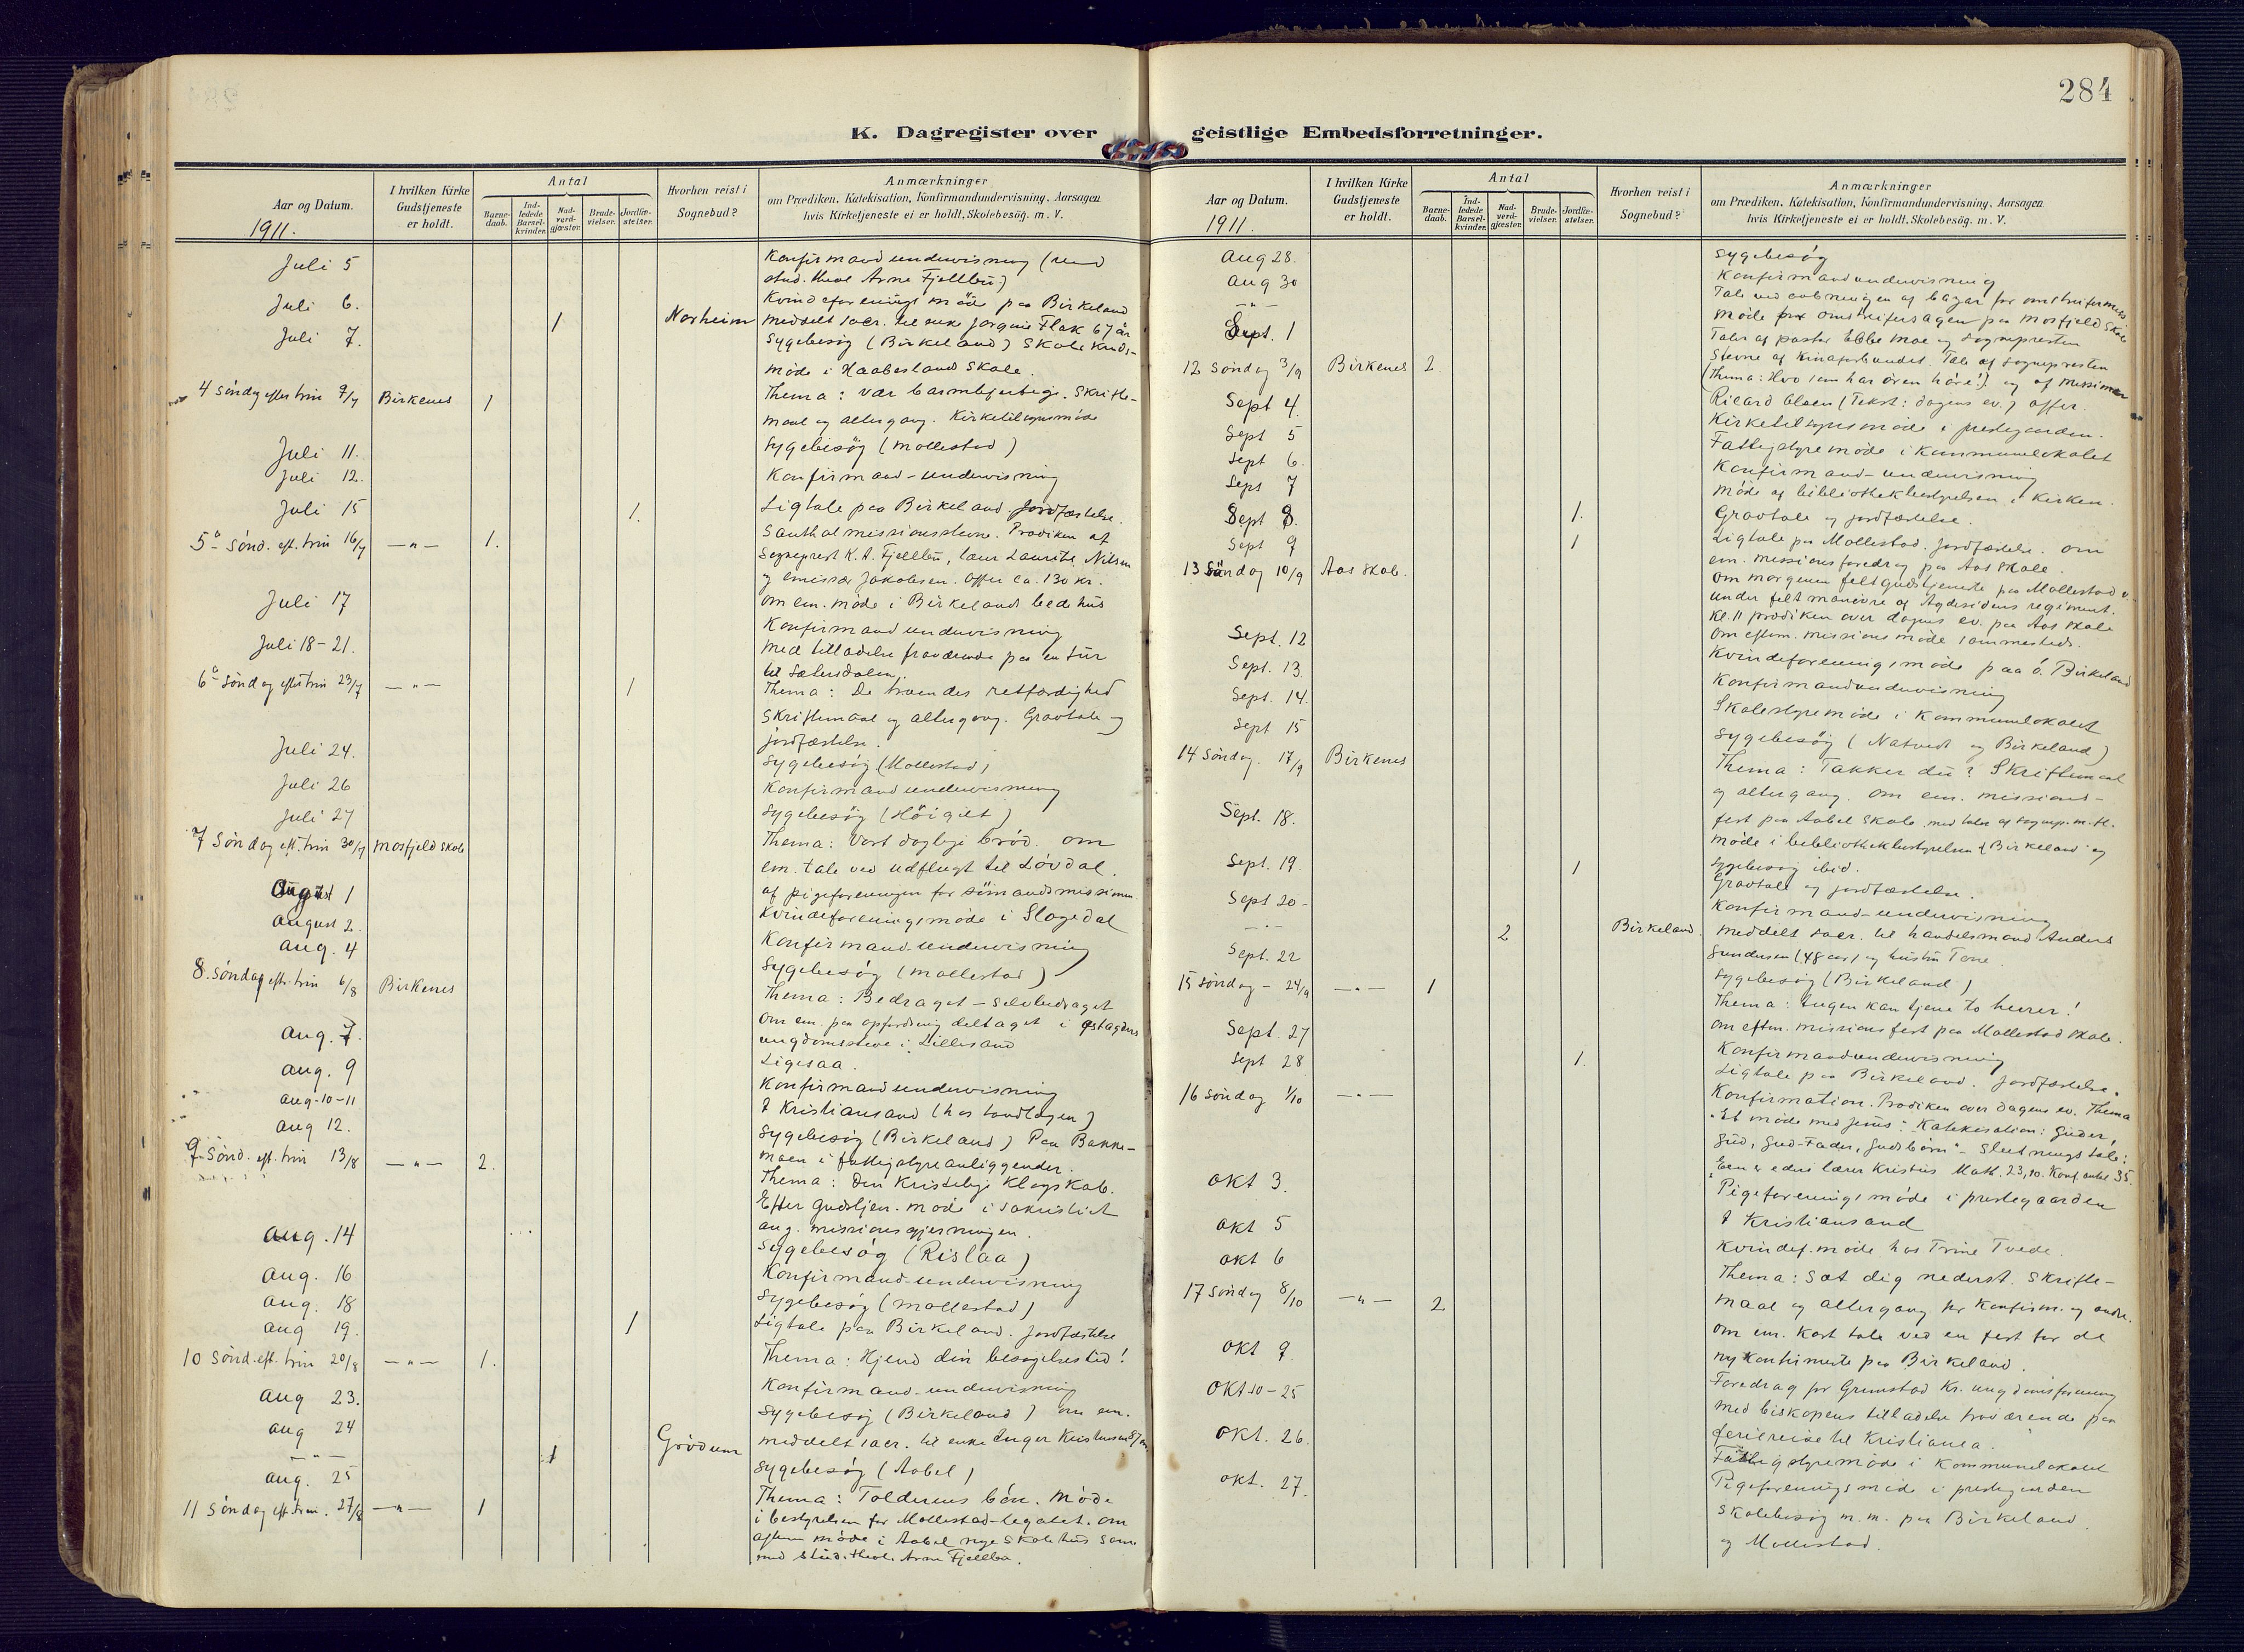 284
K. Dagregister over geistlige Embedsforretninger.
Aar og Datum.
1911.
I hvilken Kirke Gudstjeneste er holdt.
Antal
Barne-daab.
Ind-ledede Barsel-kvinder.
Nad-verd-gjæster.
Brude-vielser.
Jordfæ-stelser.
Hvorhen reist i Sognebud?
Anmærkninger
om Prædiken, Katekisation, Konfirmandundervisning, Aarsagen
hvis Kirketjeneste ei er holdt, Skolebesøg. m. V.
Juli 5 Konfirmandundervisning (ved
stud. theol Arne Fjellbu)
Juli 6. Kvindeforeningsmöde paa Birkeland
Juli 7. 1 Norheim meddelt sacr. til enke Jorgine Flak 67 år
Sygebesög (Birkeland) Skole
möde i Haabesland Skole.
4 söndag efter trin 9/7 Birkenes 1 Thema: Vær barmhjertige. Skrifte-
maal og altergang. Kirketilsynsmöde
Juli 11. Sygebesög (Mollestad)
Juli 12. Konfirmand-undervisning
Juli 15 1. Ligtale paa Birkeland. Jordfæstelse.
5 sönd. eft. trin 16/7 —"— 1. Santhalmissionsstevne. Prædiken af
Sogneprest K. A. Fjellbu, Laurits Nilsen
og emissær Jakobsen. Offer ca. 130 kr.
om em. möde i Birkeland bedehus
Juli 17 Konfirmandundervisning
Juli 18-21. Med tilladelse fraværende paa en tur
til Sætersdalen.
6 söndag efter trin 23/7 —"— 1 Thema: De troendes retfærdighed
Skriftemaal og altergang. Gravtale og
jordfæstelse.
Juli 24. Sygebesög (Mollestad)
Juli 26 Konfirmandundervisning
Juli 27 Sygebesög (Höigilt)
7 Söndag eft. trin 30/7 Mosfjeld skole Thema: Vort daglige bröd. Om
em. tale ved udflugt til Lövdal.
af pigeforeningen for sömandsmissionen.
August 1 Kvindeforeningsmöde i Slogedal
August 2. Konfirmand-undervisning
Aug. 4 Sygebesög (Mollestad)
8. söndag eft. trin 6/8 Birkenes Thema: Bedraget – selvbedraget
Om em. paa opfordring deltaget i
ungdomsstevne i Lillesand
Aug. 7. Ligesaa.
Aug. 9 Konfirmandundervisning
Aug-10-11 I Kristiansand (hos tandlægen)
Aug 12. Sygebesög (Birkeland) Paa Bakke-
moen i fattigstyreanliggender.
9. Sönd. eft. trin 13/8 —"— 2. Thema: Den Kristelige Klogskab.
Efter Gudstjen. möde i sakristiet
ang. missionsgjerningen.
Aug. 14 Sygebesög (Rislaa)
Aug. 16 Konfirmand-undervisning
Aug. 18 Sygebesög (Mollestad)
Aug 19. 1 Ligtale paa Birkeland. Jordfæstelse
10 Sönd. eft. trin 20/8 —"— 1. Thema: Kjend din besögelsestid!
Aug 23. Konfirmand-undervisning
Aug 24 Sygebesög (Birkeland) om em.
—"— 1 Grödum meddelt sacr. til enke Inger
Aug. 25 Sygebesög (Aabel)
11 Söndag eft. trin. 27/8 —"— 1 Thema: Tolderens bön. Möde
i bestyrelsen for Mollestad-legatet. Om
aften möde i Aabel nye skolehus sam.
med stud. theol. Arne Fjellbu.
Aar og Datum.
1911.
I hvilken Kirke Gudstjeneste er holdt.
Antal
Barne-daab.
Ind-ledede Barsel-kvinder.
Nad-verd-gjæster.
Brude-vielser.
Jordfæ-stelser.
Hvorhen reist i Sognebud?
Anmærkninger
om Prædiken, Katekisation, Konfirmandundervisning, Aarsagen
hvis Kirketjeneste ei er holdt, Skolebesøg. m. V.
Aug 28. Sygebesög
Aug 30 Konfirmandundervisning
—"— Tale ved aabningen af bazar for
Sept. 1 Möde paa Mosfjeld Skole
Taler af pastor Ebbe Moe og sognepresten
12 Söndag 3/9 Birkenes 2. Stevne af Kinaforbundet. Tale af sognepresten
(Thema: Hvo som har ören höre!) og af missionær
Rikard Olsen (Tekst: dagens ev.) offer.
Sept 4. Kirketilsynsmöde i prestegaarden.
Sept 5 Fattigstyremöde i Kommunelokalet
Sept 6. Konfirmand-undervisning
Sept 7 Möde af bibliothekbestyrelsen i Kirken.
Sept 8. 1. Gravtale og jordfæstelse.
Sept 9 1 Ligtale paa Mollestad. Jordfæstelse. Om
em. missionsforedrag paa Aas skole.
13 Söndag 10/9 Aas skole. Om morgenen feltgudstjeneste paa Mollestad
under feltmanövre af Agdesidens regiment.
Kl. 11 prædiken over dagens ev. paa Aas skole
Om eftm. missionsmöde sammesteds.
Sept. 12 Kvindeforeningsmöde paa ö. Birkeland
Sept. 13. Konfirmandundervisning
Sept. 14. Skolestyremöde i Kommunelokalet
Sept 15 Sygebesög (Natvedt og Birkeland)
14 Söndag. 17/9 Birkenes Thema: Takker du? Skriftemaal
og altergang. Om em. missions-
fest paa Aabel skole med taler af sognep. m. fl.
Sept. 18. Möde i bibliothekbestyrelsen i Birkeland og
sygebesög ibid.
Sept. 19. 1 Gravtale og jordfæstelse.
Sept 20- Konfirmand-undervisning
—"— 2 Birkeland. Meddelt sacr. til handelsmand Anders
Gundersen (48 aar) og hustru Tone.
Sept. 22 Sygebesög (Birkeland)
15 söndag – 24/9 —"— 1 Thema: Ingen kan tjene to herrer!
Om eftm. missionsfest paa Mollestad skole.
Sept. 27 Konfirmandundervisning
Sept 28 1. Ligtale paa Birkeland. Jordfæstelse.
16 söndag 1/10 —"— Konfirmation. Prædiken over dagens ev. Thema
"Et möde med Jesus". Katekisation:
Gud, Gud-Fader, Guds börn" – Slutningstale:
"Een er eders lærer Kristus Math. 23,10. Konf. antal 35.
Okt 3. Pigeforeningsmöde i prestegaarden
Okt 5 I Kristiansand
Okt 6 Kvindef. möde hos Trine Tvede.
17 Söndag 8/10 —"— 2 Thema: Sæt dig nederst. Skrifte-
maal og altergang for Konfirm. og andre.
Om em. kort tale ved en fest for de
ny konfirmerte paa Birkeland.
Okt 9. Foredrag for Grimstad Kr. ungdomsforening
Okt 10-25 Med biskopens tilladelse fraværende paa
feriereise til Kristiania.
Okt. 26. Fattigstyremöde i Kommunelokalet
Pigeforeningsmöde i prestegaarden
Okt. 27. Skolebesög m. m. paa Birkeland
og Mollestad.